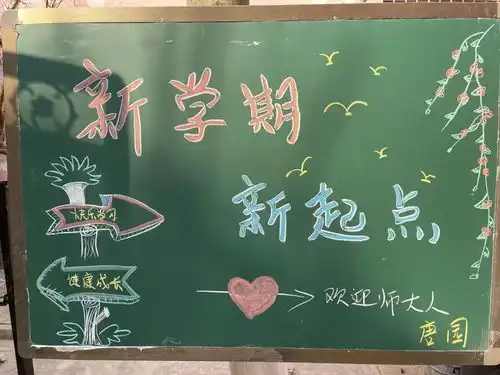 新学期
新起点
快乐学习
健康成长
欢迎师大人
唐园